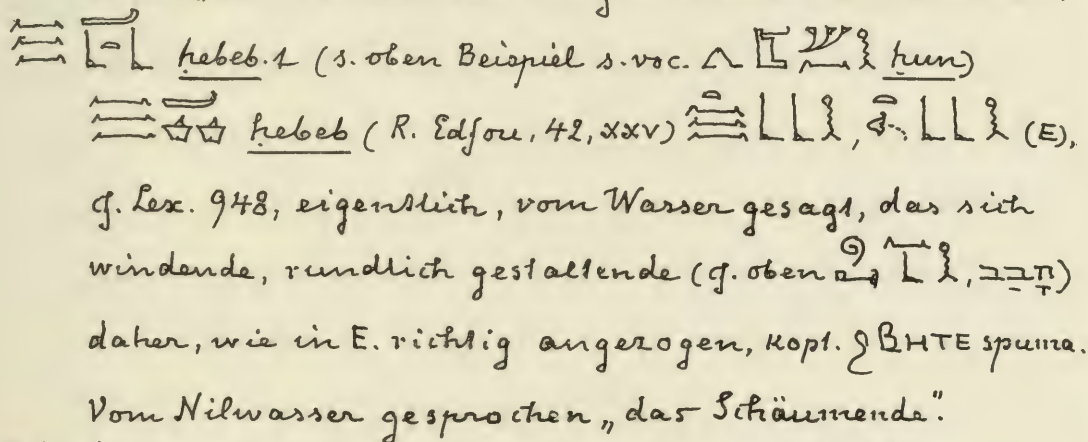 ḥebeb.t (s. oben Beispiel s. voc. ḥun)
ḥebeb (R. Edfou, 42, XXV) , (E),
cf. Lex. 948, eigentlich, vom Wasser gesagt, das sich
windende, rundlich gestaltende (cf. oben , חבב)
daher, wie in E. richtig angezogen, kopt. ϩⲃⲏⲧⲉ spuma.
Vom Nilwasser gesprochen „das Schäumende".